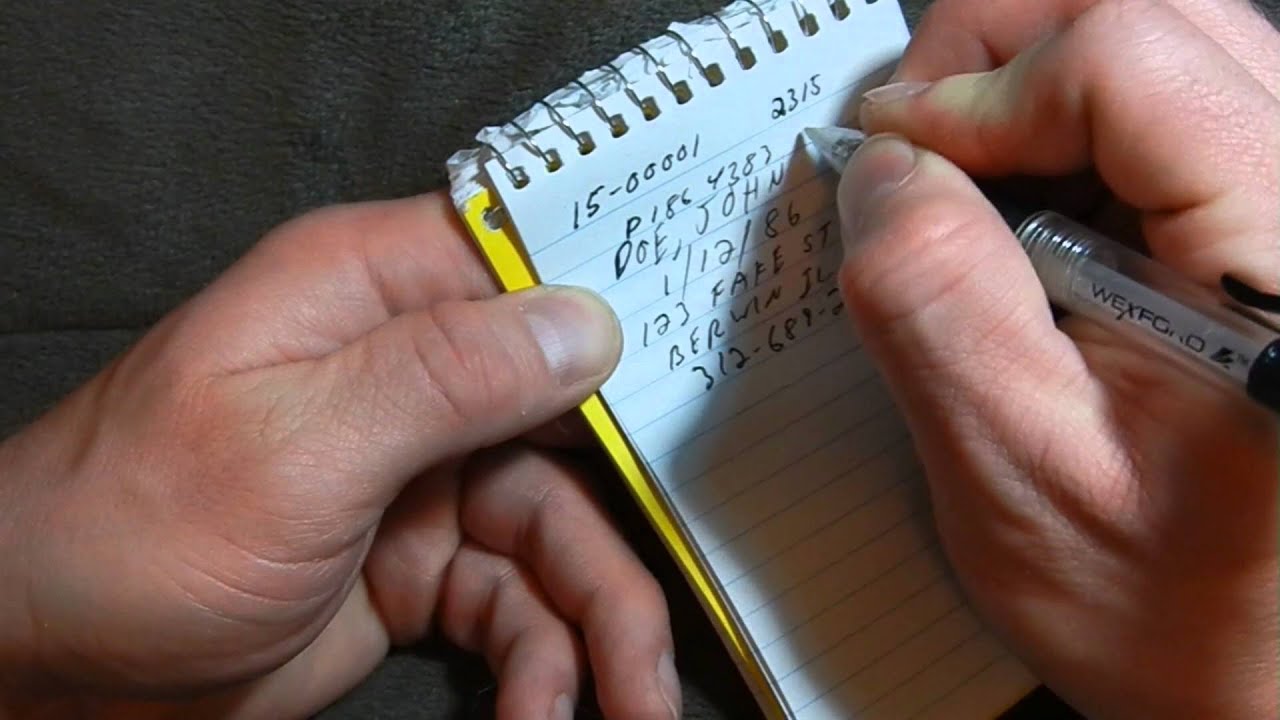 2315
15-00001
P186 4383
DOE, JOHN
1/12/86
123 FAKE ST
BERWIN IL
312-689-2
WEXFORD